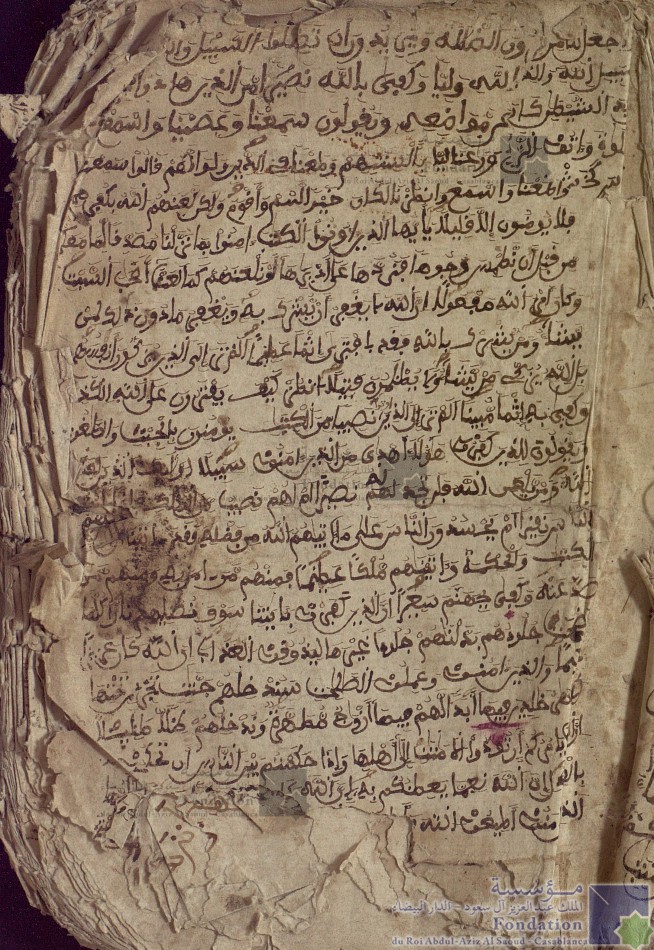 ون الضللة ويريدون ان تضلوا السبيل
الله وليا وكفى بالله نصيرا من الذين هادوا
عن مواضعه ويقولون سمعنا وعصينا واسمع
ورعنا ليا بالسنتهم وطعنا في الدين ولو انهم قالوا سمعنا
واطعنا واسمع وانظرنا لكان خيرا لهم واقوم ولكن لعنهم الله بكفرهم
فلا يومنون الا قليلا يايها الذين اوتوا الكتب امنوا بما نزلنا مصدقا لما معكم
من قبل ان نطمس وجوها فنردها على ادبرها او نلعنهم كما لعنا اصحب السبت
وكان امر الله مفعولا ان الله لا يغفر ان يشرك به ويغفر ما دون ذلك لمن
يشاء ومن يشرك بالله فقد افترى اثما عظيما الم تر الى الذين يزكون انفسهم
بل الله يزكي من يشاء ولا يظلمون فتيلا انظر كيف يفترون على الله الكذب
وكفى به اثما مبينا الم تر الى الذين نصيبا من الكتب يومنون بالجبت والطغوت
ويقولون للذين كفروا هؤلاء اهدى من الذين امنوا سبيلا اولئك الذين لعنهم
الله ومن يلعن الله فلن تجد له نصيرا ام لهم نصيب من الملك
الناس نقيرا ام يحسدون الناس على ما اتيهم الله من فضله فقد اتينا
الكتب والحكمة واتينهم ملكا عظيما فمنهم من امن به ومنهم من
صد عنه وكفى بجهنم سعيرا ان الذين كفروا بايتنا سوف نصليهم نارا كلما
نضجت جلودهم بدلنهم جلودا غيرها ليذوقوا العذاب ان الله كان عزيزا
حكيما والذين امنوا وعملوا الصلحت سندخلهم جنت تجري من تحتها
خلدين فيها ابدا لهم فيها ازوج مطهرة وندخلهم ظلا ظليلا
يامركم ان تودوا الامنت الى اهلها واذا حكمتم بين الناس ان تحكموا
بالعدل ان الله نعما يعظكم به ان الله
امنوا اطيعوا الله
مؤسسة
الملك عبد العزيز آل سعود - الدار البيضاء
Fondation
du Roi Abdul-Aziz Al Saoud - Casablanca